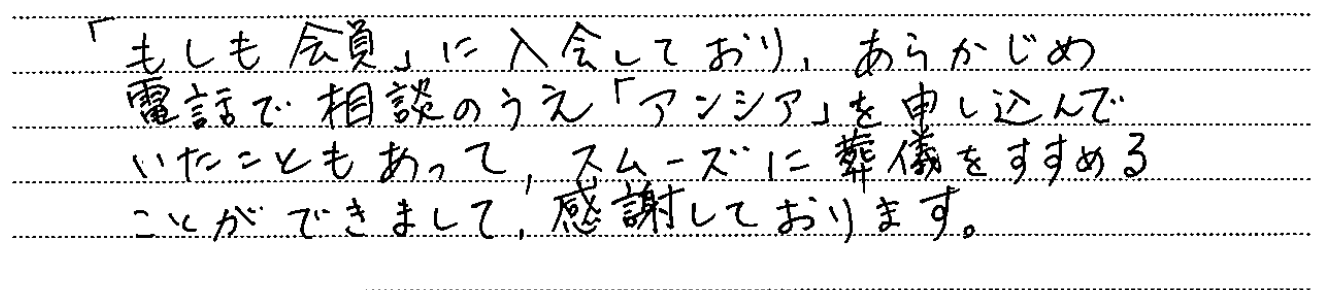 「もしも会員」に入会しており、あらかじめ
電話で相談のうえ「アンシア」を申し込んで
いたこともあって、スムーズに葬儀をすすめる
ことができまして、感謝しております。